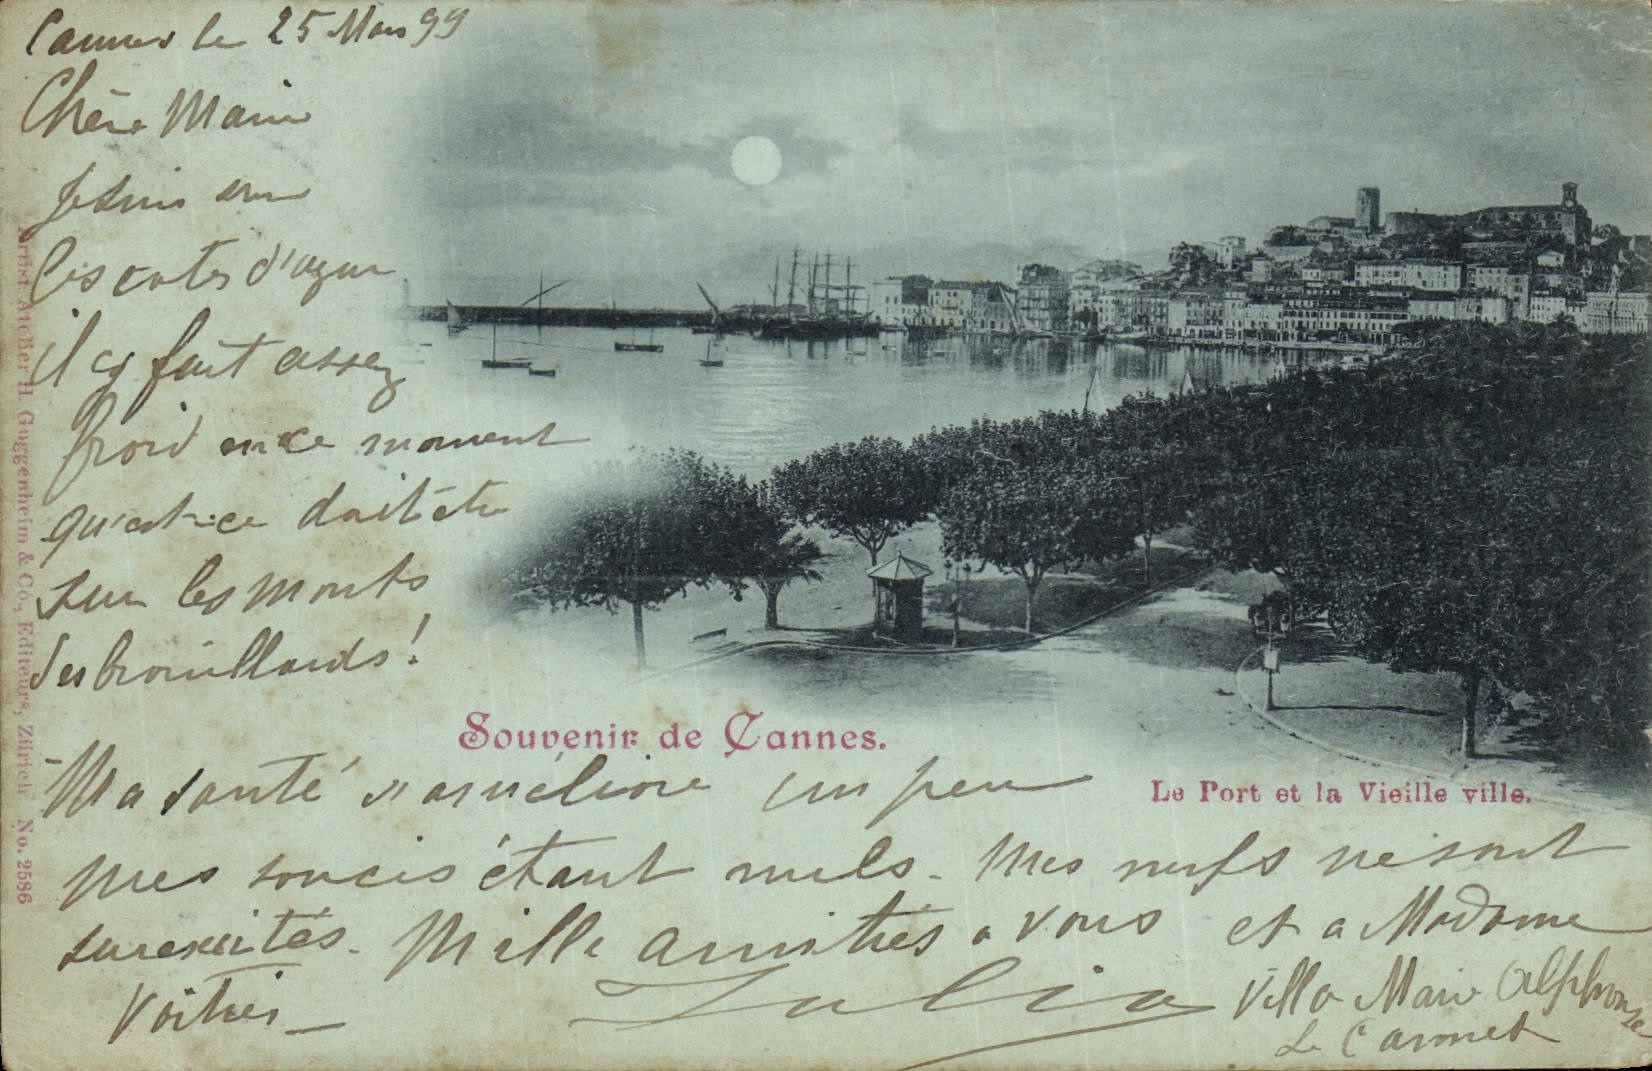 Cannes le 25 Mars 99
Chère Marie
Je suis sur
les cotes d'azur
il y fait assez
froid en ce moment
qu'est-ce doit être
sur les monts
des brouillards!
Souvenir de Cannes.
Le Port et la Vieille ville.
Ma santé s'améliore un peu
mes soucis étant nuls. Mes nerfs ne sont
surexcités. Mille amitiés a vous et a Madame
Voitrier
Julia
Villa Marie Alphonse
Le Cannet
Artist. Atelier H. Guggenheim & Co., Editeurs, Zürich No. 2586